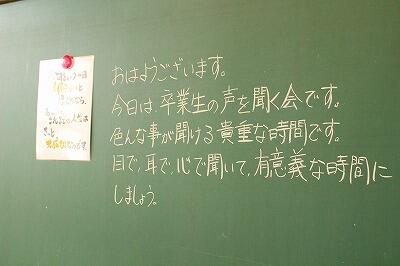 おはようございます。
今日は卒業生の声を聞く会です。
色んな事が聞ける貴重な時間です。
目で、耳で、心で聞いて、有意義な時間に
しましょう。